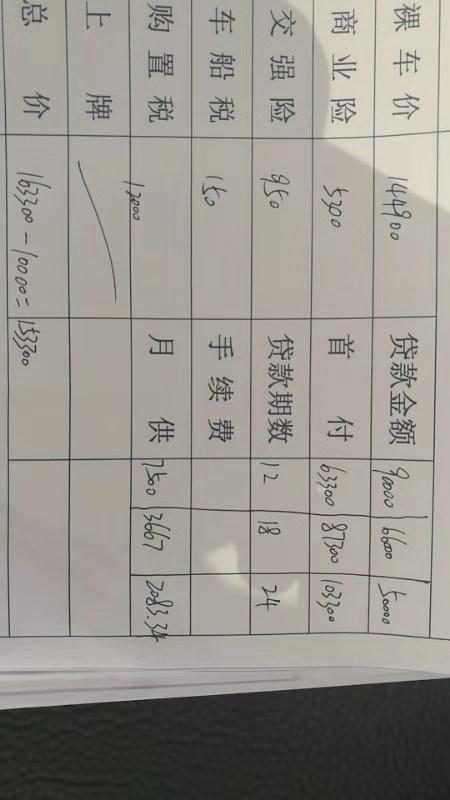 裸车价 144900 贷款金额 90000 66000 50000
商业险 5300 首付 63300 87300 103300
交强险 950 贷款期数 12 18 24
车船税 150 手续费
购置税 12000 月供 7500 3667 2083.34
上牌
总价 163300-10000=153300